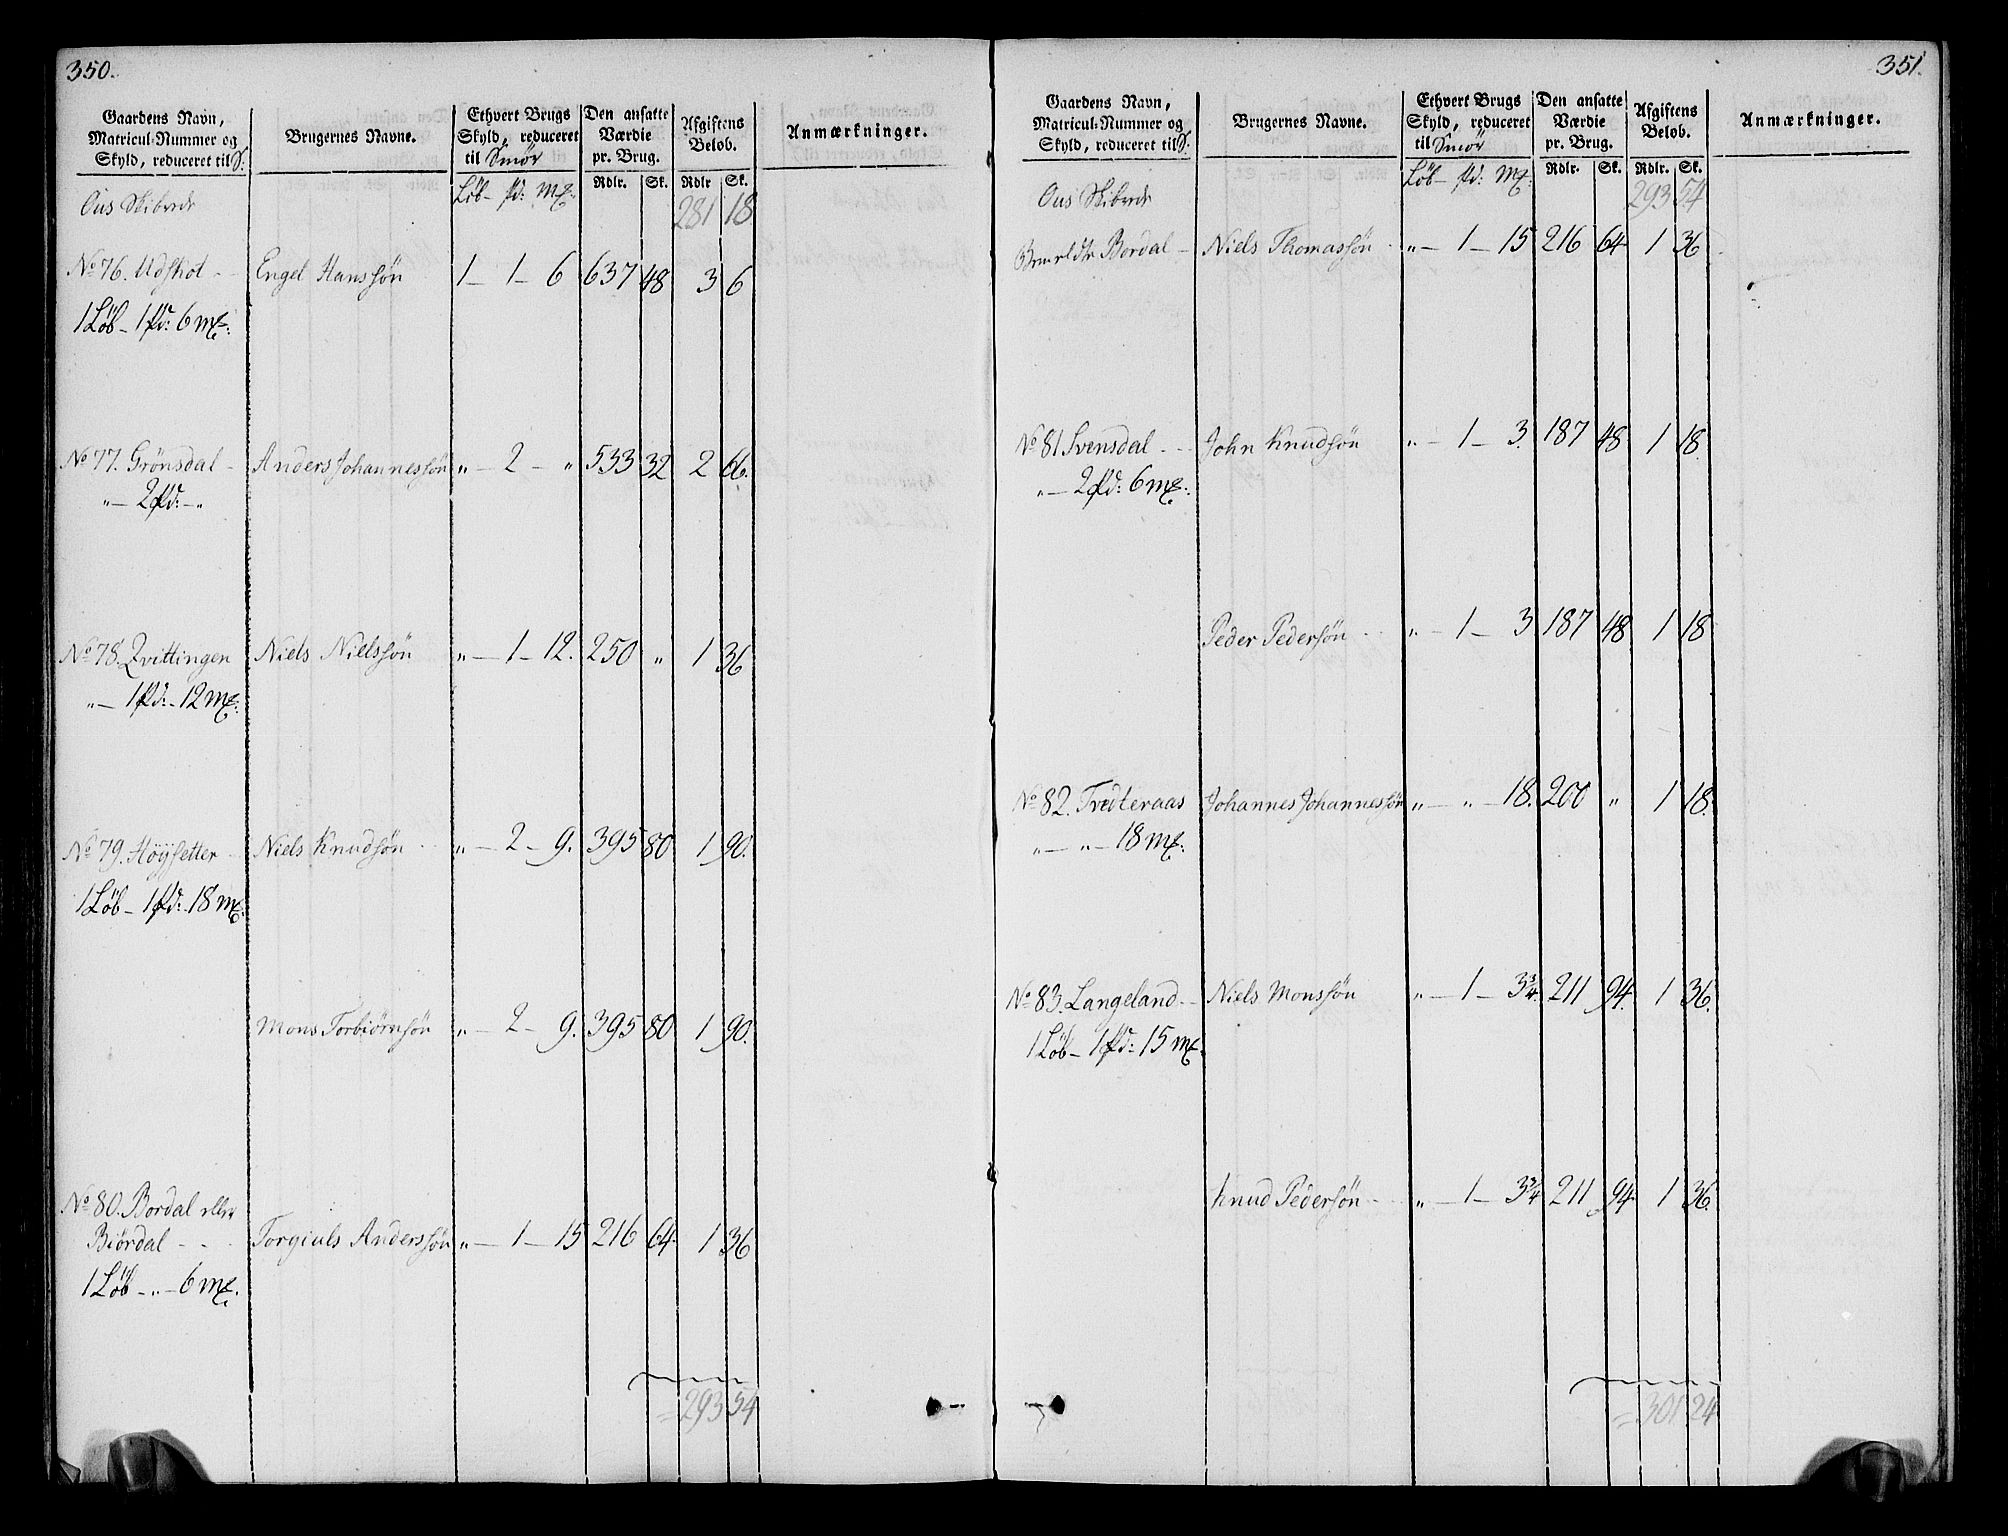 350.
Gaardens Navn, Matricul-Nummer og Skyld, reduceret til S. | Brugernes Navne. | Ethvert Brugs Skyld, reduceret til Smör | Den ansatte Værdie pr. Brug. | Afgiftens Beløb. | Anmærkninger.
Løb - pd: mk: | Rdlr. | Sk. | Rdlr | Sk.
Ous Skibrede 281 18
No 76. Udskot - Engel Hanssøn 1 - 1 - 6 637 48 3 6
1 Løb - 1 pd: 6 mk:
No 77. Grönsdal - Anders Johannessøn „ - 2 - „ 533 32 2 66.
„ - 2 pd: - „
No 78. Qvittingen Niels Nielssøn „ - 1 - 12. 250 „ 1 36
„ - 1 pd: - 12 mk:
No 79. Höÿsetter Niels Knudsøn „ - 2 - 9. 395 80 1 90.
1 Løb - 1 pd: - 18 mk:
Mons Torbiørnsøn „ - 2 - 9. 395 80 1 90.
No 80. Bordal eller
Biørdal - - - Torgiuls Anderssøn „ - 1 - 15 216 64. 1 36
1 Løb - „ - 6 mk.
= 293 54
351.
Gaardens Navn, Matricul-Nummer og Skyld, reduceret til S. | Brugernes Navne. | Ethvert Brugs Skyld, reduceret til Smör | Den ansatte Værdie pr. Brug. | Afgiftens Beløb. | Anmærkninger.
Løb - pd: mk: | Rdlr. | Sk. | Rdlr. | Sk.
Ous Skibrede 293 54
Bordal - Niels Thomassøn „ - 1 - 15 216 64 1 36
No 81 Svensdal - - - John Knudsøn „ - 1 - 3. 187 48 1 18.
„ - 2 pd: 6 mk:
Peder Pedersøn „ - 1 - 3 187 48 1 18
No 82. Tredteraas Johannes Johannessøn „ - „ - 18. 200 „ 1 18.
„ - „ - 18 mk:
No 83. Langeland - - Niels Monssøn „ - 1 - 3¾. 211 94. 1 36.
1 Løb - 1 pd: 15 mk:
Knud Pedersøn „ - 1 - 3¾ 211 94. 1 36.
= 301 24